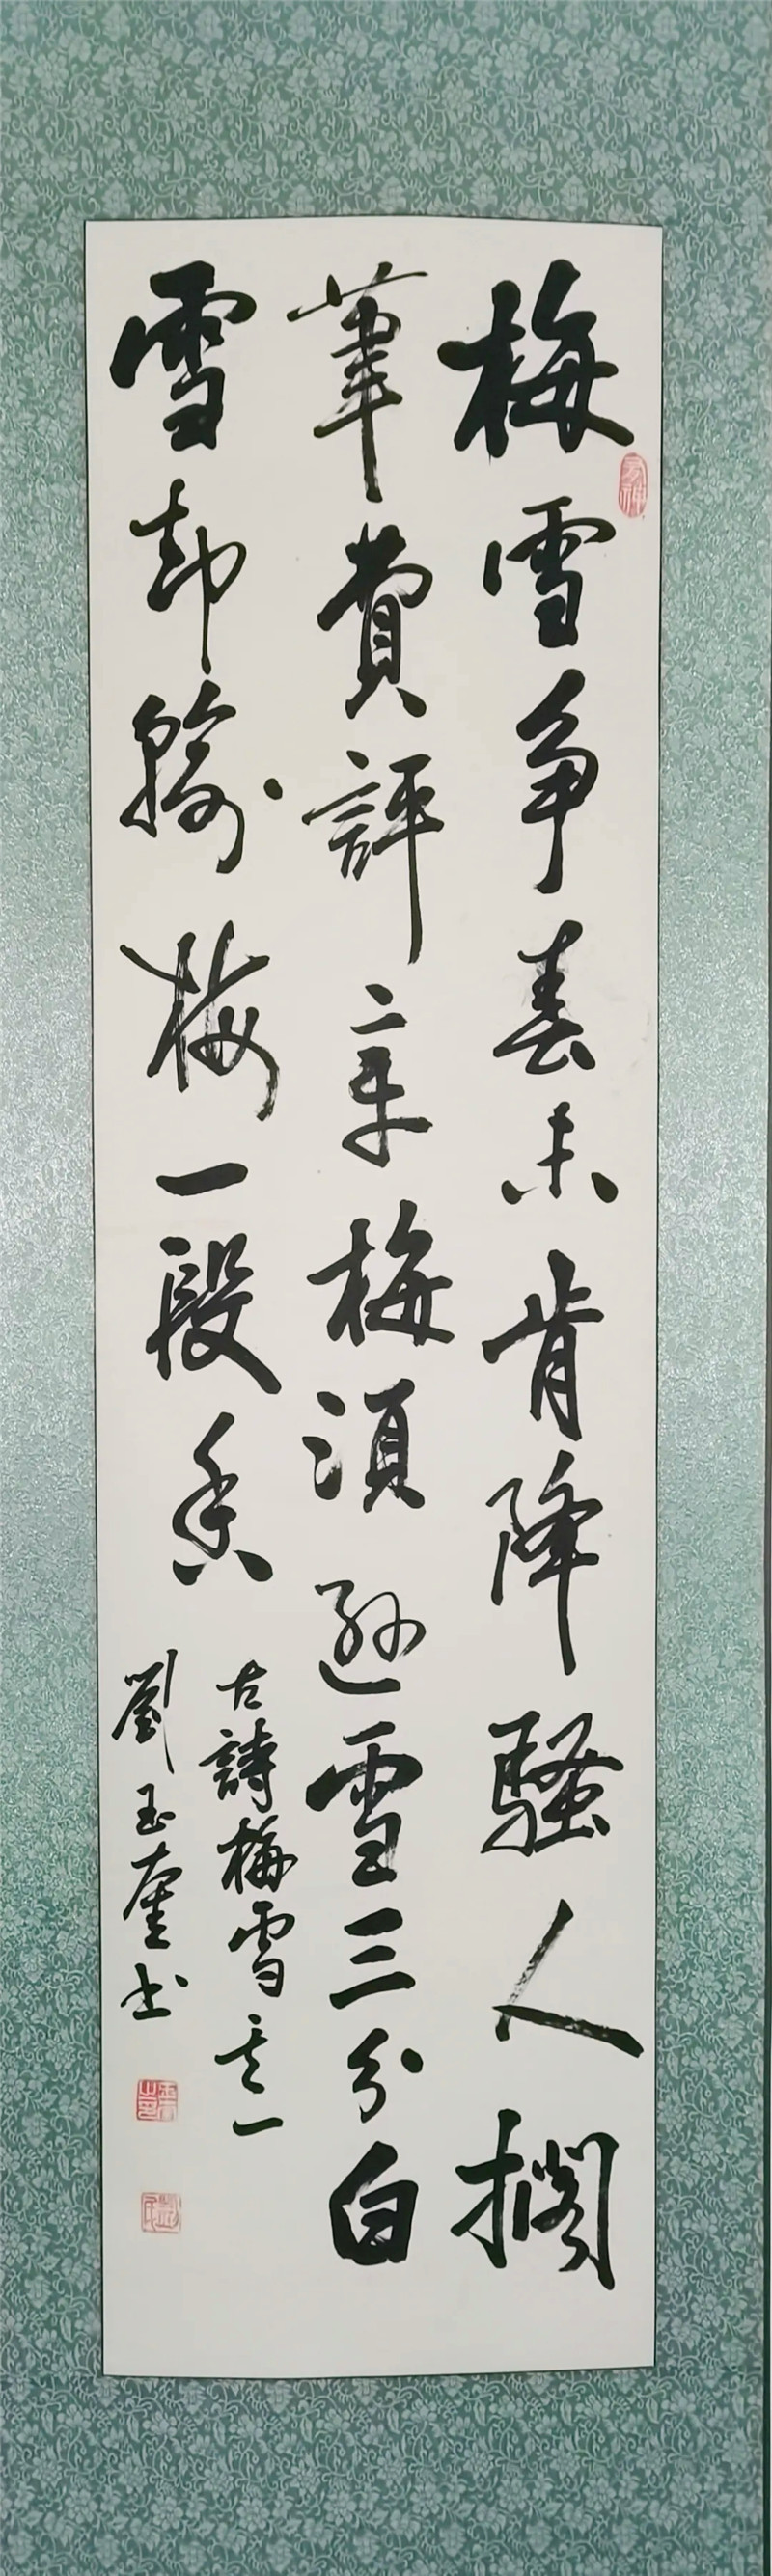 梅雪争春未肯降騷人擱
筆費評章梅須遜雪三分白
雪却輸梅一段香
古詩梅雪其一
劉玉奎书